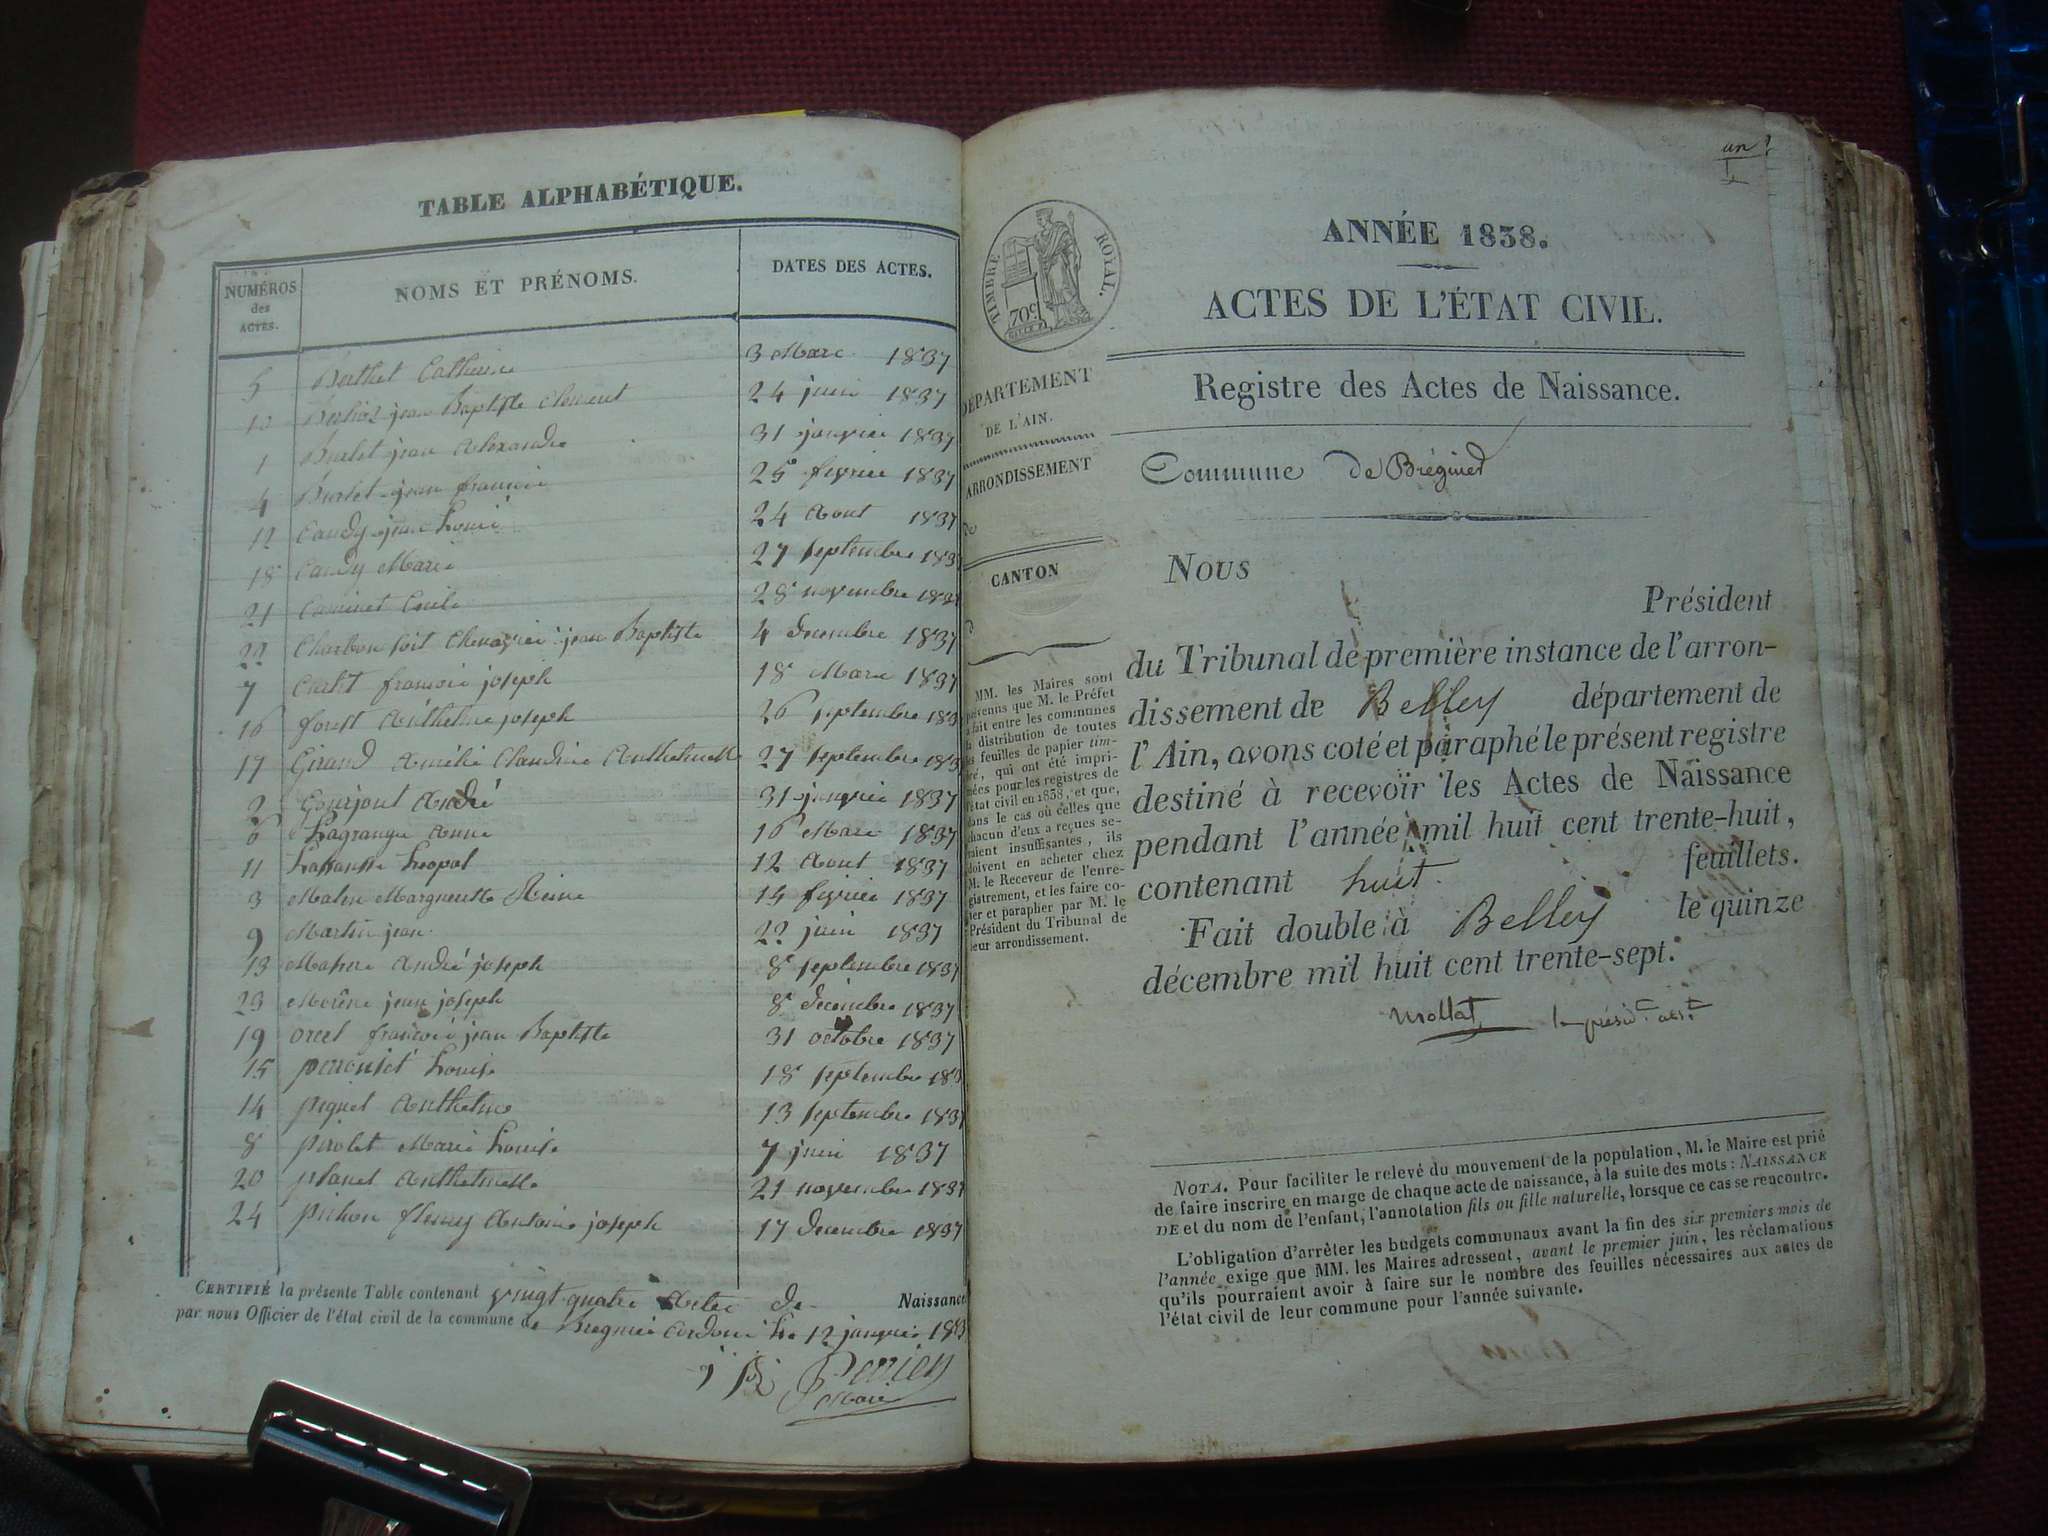 TABLE ALPHABÉTIQUE.
NUMÉROS des ACTES.
NOMS ET PRÉNOMS.
DATES DES ACTES.
5 Berthet Catherine 3 Mars 1837
10 jean Baptiste Clément 24 juin 1837
1 Burlet jean Alexandre 31 janvier 1837
4 Burlet jean francois 25 fevrier 1837
12 Candy jean Louis 24 Aout 1837
18 Candy Marie 27 septembre 183
21 28 novembre 1837
22 Charbon soit jean Baptiste 4 decembre 1837
7 francois joseph 18 Mars 1837
16 forest Anthelme joseph 26 septembre 183
17 Girand Amélie Claudine Anthelmette 27 septembre 183
2 Gourjout André 31 janvier 1837
6 Lagrange Anne 16 Mars 1837
11 Lassausse Leopol 12 Aout 1837
3 Margueritte Reine 14 fevrier 1837
9 Martin jean 22 juin 1837
13 André joseph 8 septembre 1837
23 jean joseph 8 decembre 1837
19 orcel francois jean Baptiste 31 octobre 1837
15 Louise 18 septembre 183
14 piquet Anthelme 13 septembre 1837
8 pirolet Marie Louise 7 juin 1837
20 planet Anthelmette 21 novembre 1837
24 pichon fleury Antoine joseph 17 decembre 1837
CERTIFIÉ la présente Table contenant vingt quatre Actes de Naissance
par nous Officier de l'état civil de la commune de Bregnier Cordon Le 12 janvier 183
Maire
un
1
TIMBRE ROYAL.
ANNÉE 1838.
ACTES DE L'ÉTAT CIVIL.
Registre des Actes de Naissance.
DÉPARTEMENT
DE L'AIN.
ARRONDISSEMENT
de
CANTON
d
MM. les Maires sont
prévenus que M. le Préfet
a fait entre les communes
la distribution de toutes
les feuilles de papier tim-
bré, qui ont été impri-
mées pour les registres de
l'état civil en 1838, et que,
dans le cas où celles que
chacun d'eux a reçues se-
raient insuffisantes, ils
doivent en acheter chez
M. le Receveur de l'enre-
gistrement, et les faire co-
ter et parapher par M. le
Président du Tribunal de
leur arrondissement.
Commune de Brégnier
NOUS
Président
du Tribunal de première instance de l'arron-
dissement de Belley département de
l'Ain, avons coté et paraphé le présent registre
destiné à recevoir les Actes de Naissance
pendant l'année mil huit cent trente-huit,
contenant huit feuillets.
Fait double à Belley le quinze
décembre mil huit cent trente-sept.
Mollat
NOTA. Pour faciliter le relevé du mouvement de la population, M. le Maire est prié
de faire inscrire en marge de chaque acte de naissance, à la suite des mots : NAISSANCE
DE et du nom de l'enfant, l'annotation fils ou fille naturelle, lorsque ce cas se rencontre.
L'obligation d'arrêter les budgets communaux avant la fin des six premiers mois de
l'année exige que MM. les Maires adressent, avant le premier juin, les réclamations
qu'ils pourraient avoir à faire sur le nombre des feuilles nécessaires aux actes de
l'état civil de leur commune pour l'année suivante.